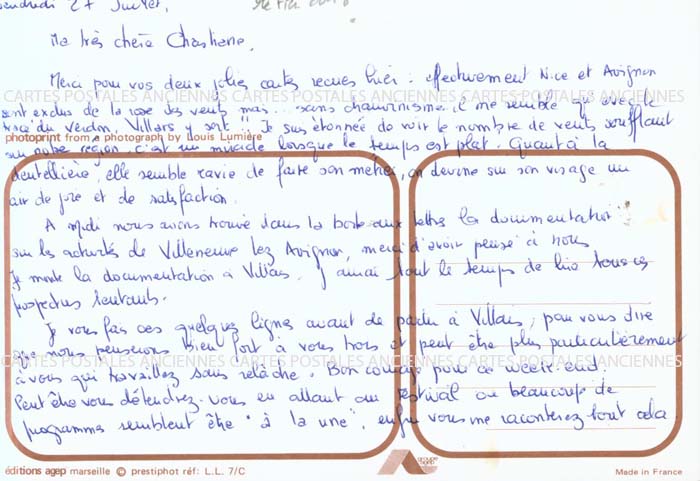 Vendredi 27 Juillet,
Ma très chère Christiane,
Merci pour vos deux jolies cartes reçues hier : effectivement Nice et Avignon
sont exclus de la rose des vents mais... sans chauvinisme il me semble qu'avec le
tracé du Verdon, Villars y sort" Je suis étonnée de voir le nombre de vents soufflant
CARTES POSTALES ANCIENNES CARTES POSTALES ANCIENNES CARTES POSTALES ANCIENNES
photoprint from a photograph by Louis Lumière
sur notre région c'est un miracle lorsque le temps est plat. Quant à la
dentellière, elle semble ravie de faire son métier, on devine sur son visage un
air de joie et de satisfaction.
A midi nous avons trouvé dans la boite aux lettres la documentation
sur les activités de Villeneuve lez Avignon, merci d'avoir pensé à nous.
Je monte la documentation à Villars. J'aurai tout le temps de lire tous ces
prospectus tentants.
Je vous fais ces quelques lignes avant de partir à Villars, pour vous dire
que nous penserons bien fort à vous trois et peut être plus particulièrement
CARTES POSTALES ANCIENNES CARTES POSTALES ANCIENNES CARTES POSTALES ANCIENNES
à vous qui travaillez sans relâche. Bon courage pour ce week-end.
Peut être vous détendrez-vous en allant au festival où beaucoup de
programmes semblent être "à la une", enfin vous me raconterez tout cela.
éditions agep marseille © prestiphot réf: L.L. 7/C
Made in France